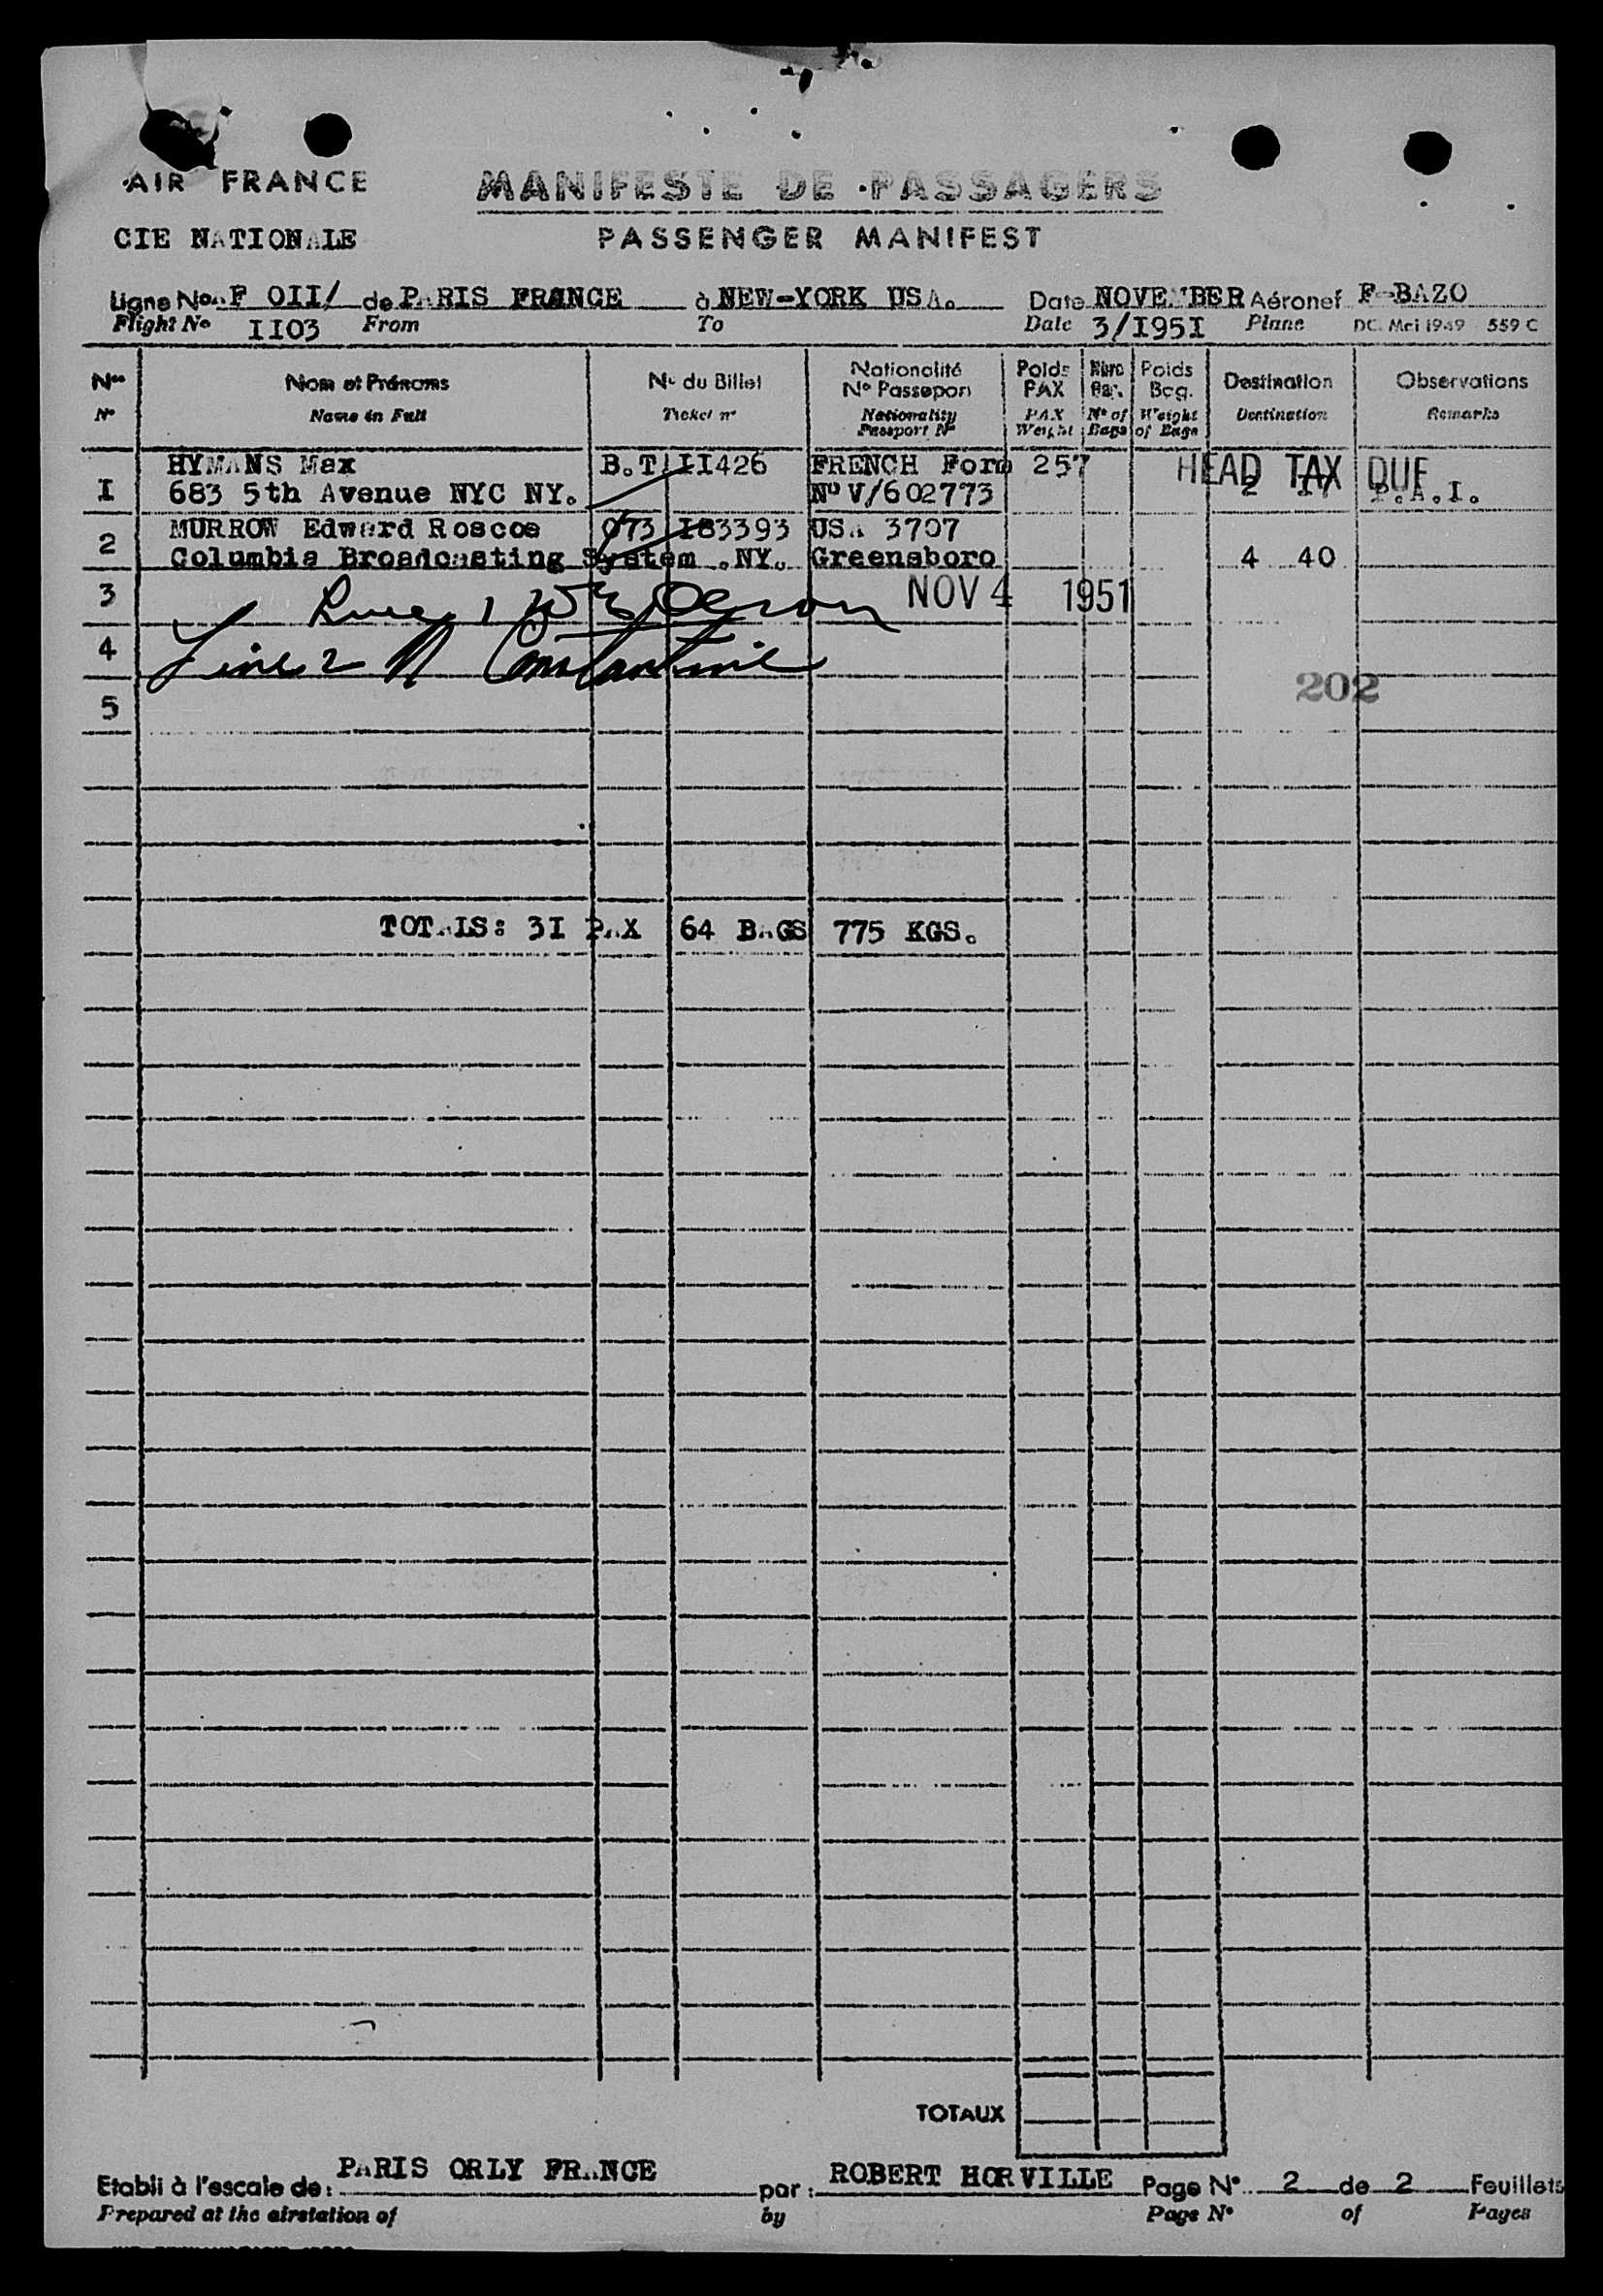 AIR FRANCE
MANIFESTE DE PASSAGERS
CIE NATIONALE
PASSENGER MANIFEST
Ligne No AF OII/ de PARIS FRANCE à NEW-YORK USA. Date NOVEMBER Aéronef F-BAZO
Flight No II03 From To Date 3/I95I Plane DC. Mci 1949 559 C
Nos Nom et Prénoms No du Billet Nationalité Poids Nbre Poids Destination Observations
No Passeport PAX Bag. Bag.
No Name in Full Ticket no Nationality PAX No of Weight Destination Remarks
Passport No Weight Bags of Bags
HYMANS Max B.T II426 FRENCH Form 257 HEAD TAX DUE
I 683 5th Avenue NYC NY. No V/602773 2 17 P.A.I.
MURROW Edward Roscoe 073 I83393 USA 3707
2 Columbia Broadcasting System .NY. Greensboro 4 40
3 1 NOV 4 1951
4 Line 2 N Constantine
202
5
TOTALS: 3I PAX 64 BAGS 775 KGS.
TOTAUX
Etabli à l'escale de: PARIS ORLY FRANCE par: ROBERT HORVILLE Page No 2 de 2 Feuillets
Prepared at the airstation of by Page No of Pages